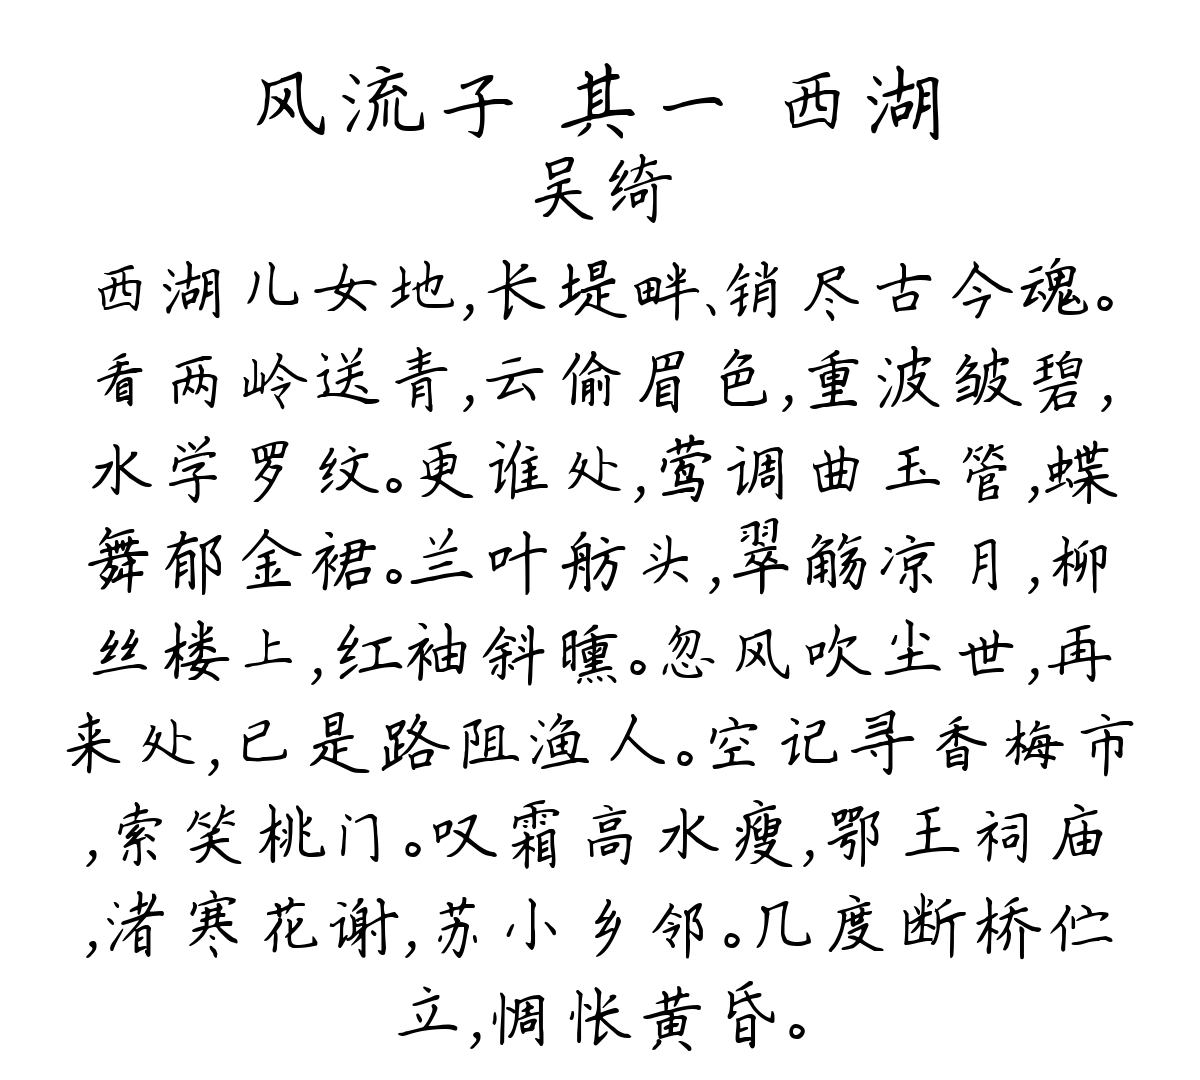 风流子 其一 西湖
吴绮
西湖儿女地,长堤畔、销尽古今魂。
看两岭送青,云偷眉色,重波皱碧,
水学罗纹。更谁处,莺调曲玉管,蝶
舞郁金裙。兰叶舫头,翠觞凉月,柳
丝楼上,红袖斜曛。忽风吹尘世,再
来处,已是路阻渔人。空记寻香梅市
,索笑桃门。叹霜高水瘦,鄂王祠庙
,渚寒花谢,苏小乡邻。几度断桥伫
立,惆怅黄昏。